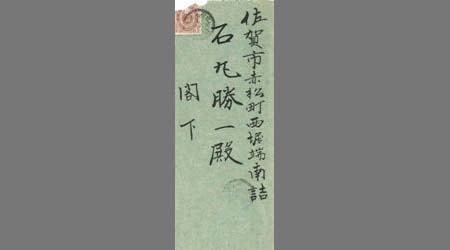 佐賀市赤松町西堀端南詰
石丸勝一殿
閣下